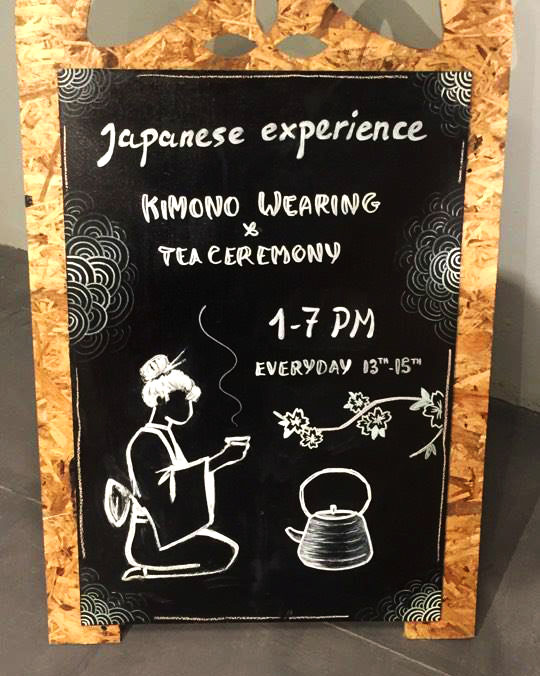 Japanese experience
KIMONO WEARING
&
TEA CEREMONY
1-7 PM
EVERYDAY 13TH-15TH